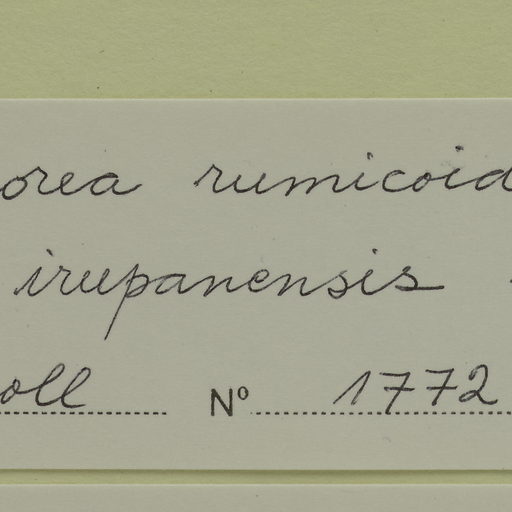 orea rumicoid
irupanensis
oll Nº 1772